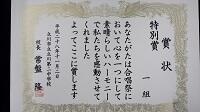 賞状
特別賞
一組
あなたがたは合唱祭に
おいて心を一つにして
素晴らしいハーモニー
で私たちを感動させて
くれました
よってここに賞します
平成二十八年十一月二日
立川市立立川第二中学校
校長 常盤 隆